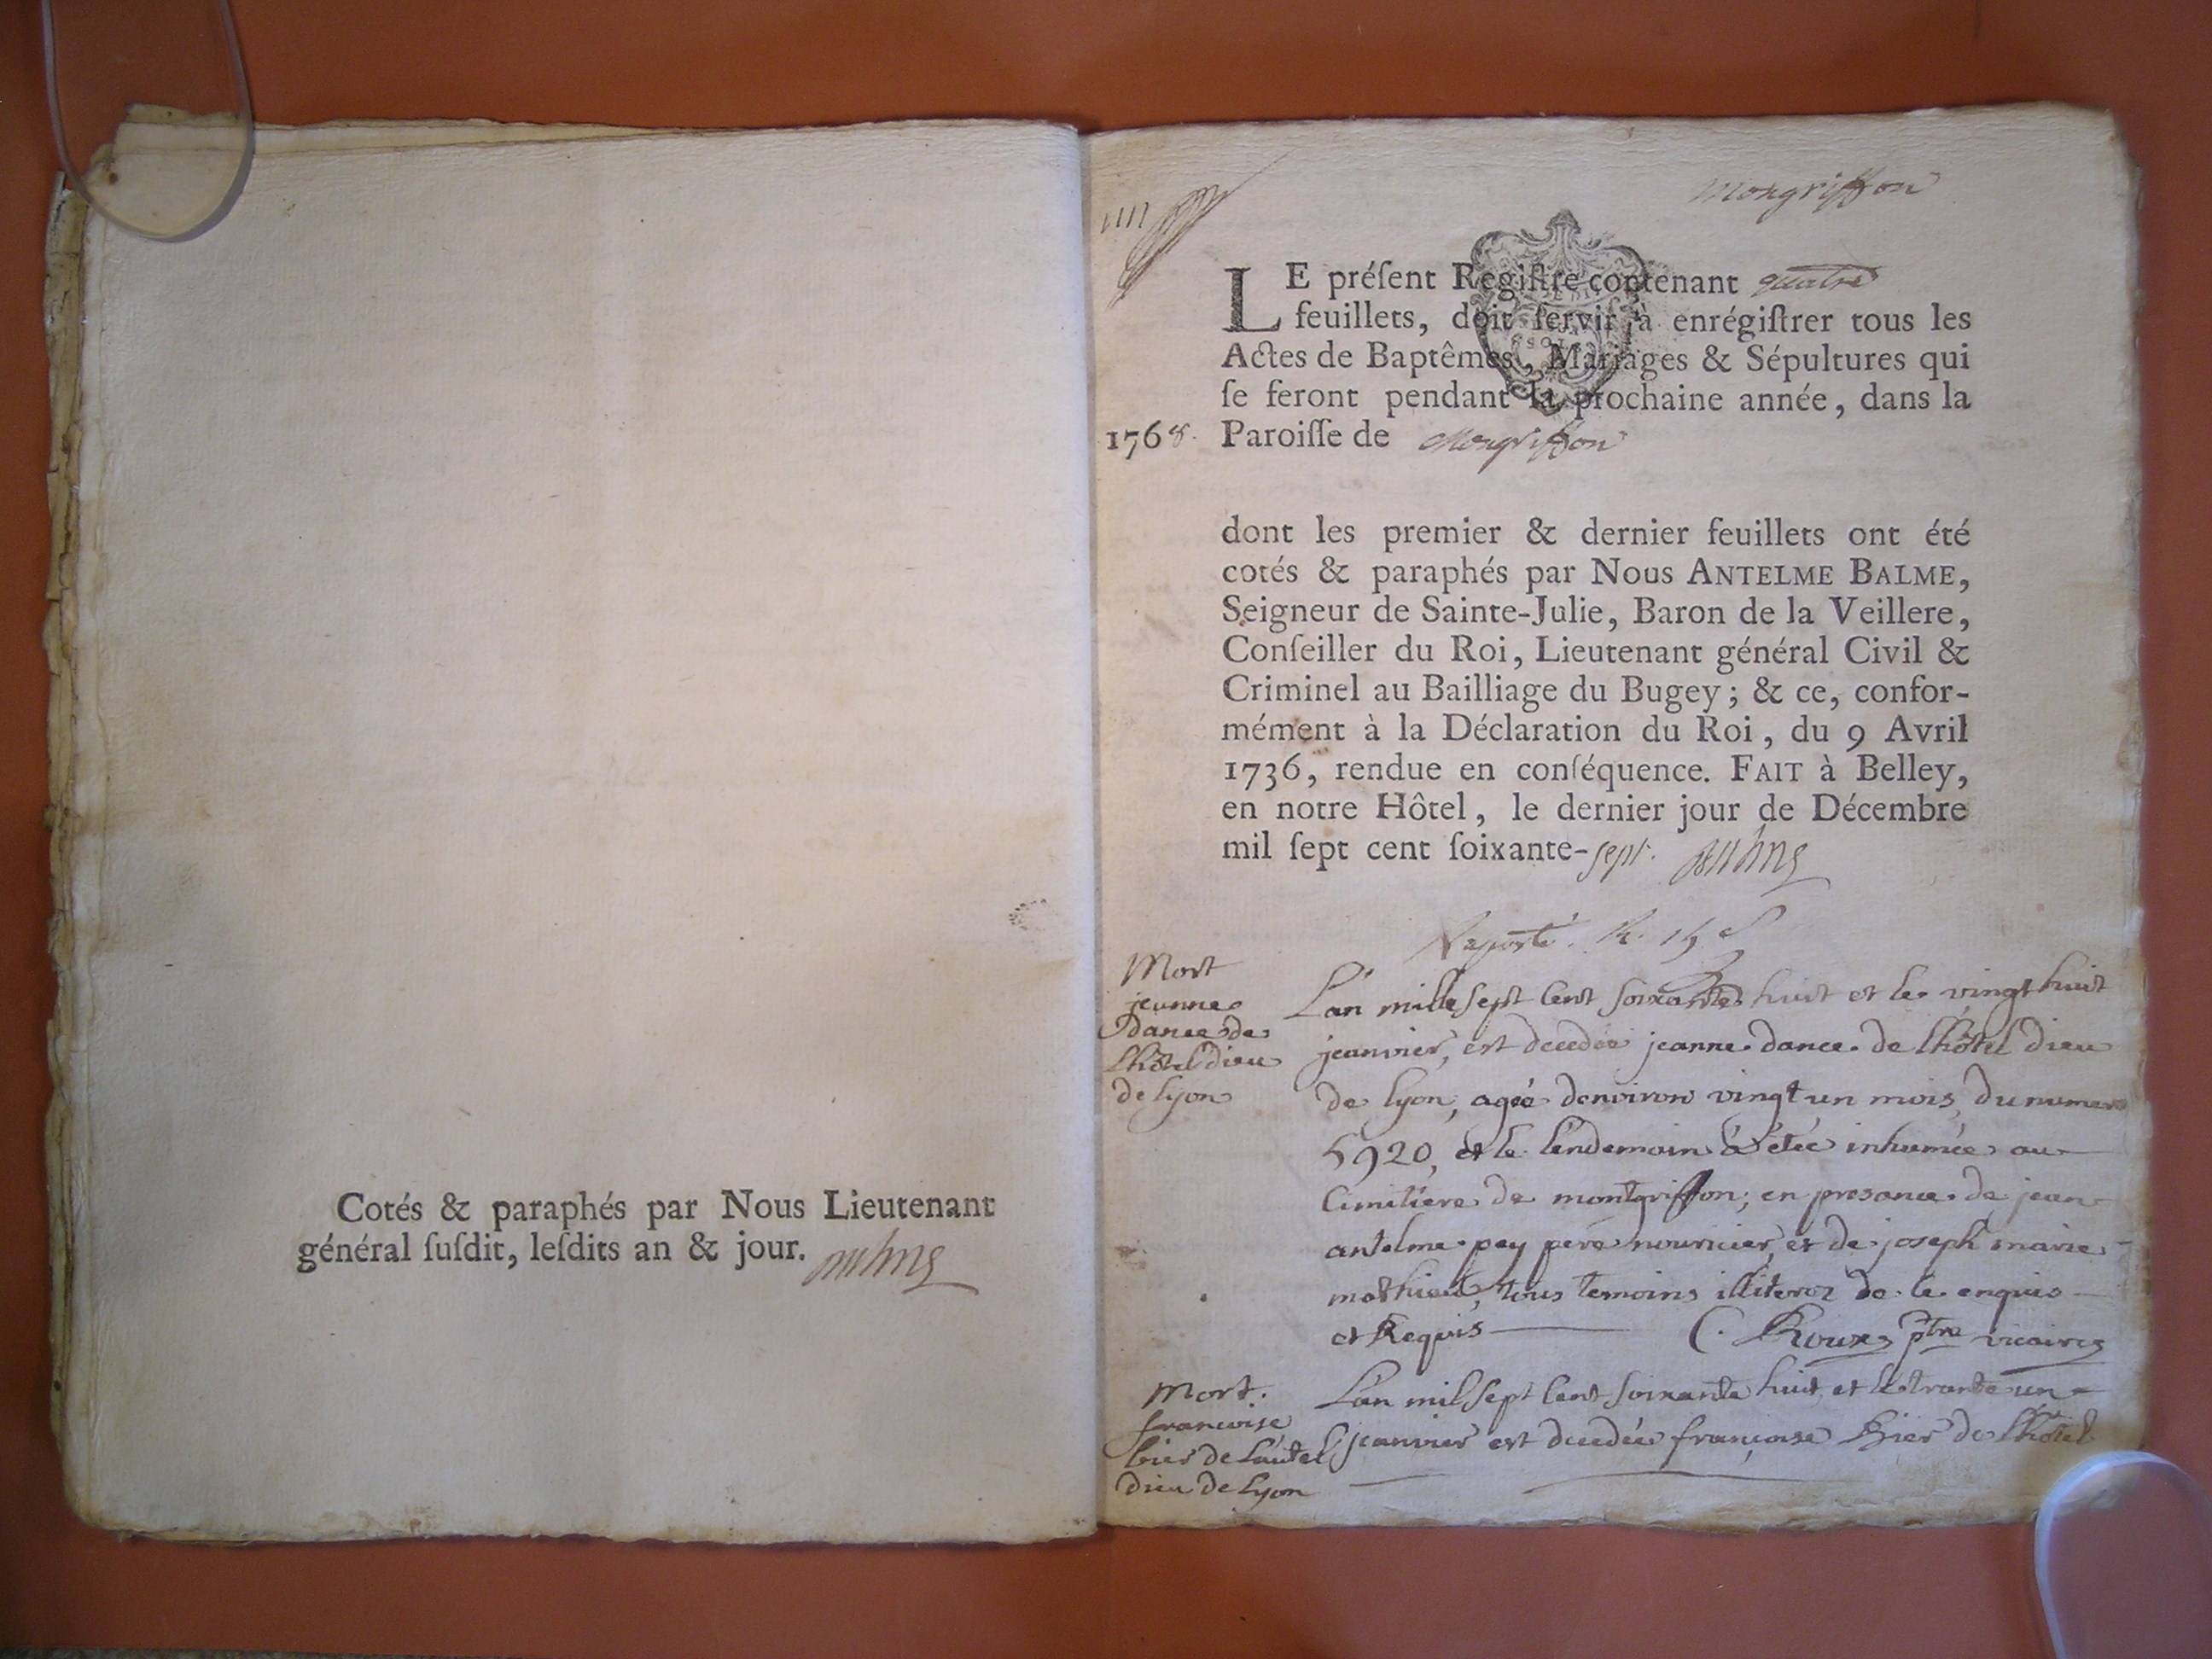 Cotés & paraphés par Nous Lieutenant
général ſuſdit, leſdits an & jour.
Mongriffon
LE préſent Regiſtre contenant quatre
feuillets, doit ſervir à enrégiſtrer tous les
Actes de Baptêmes, Mariages & Sépultures qui
ſe feront pendant la prochaine année, dans la
1768. Paroiſſe de Mongriffon
dont les premier & dernier feuillets ont été
cotés & paraphés par Nous ANTELME BALME,
Seigneur de Sainte-Julie, Baron de la Veillere,
Conſeiller du Roi, Lieutenant général Civil &
Criminel au Bailliage du Bugey; & ce, confor-
mément à la Déclaration du Roi, du 9 Avril
1736, rendue en conſéquence. FAIT à Belley,
en notre Hôtel, le dernier jour de Décembre
mil ſept cent ſoixante-sept.
Mort
jeanne
dance de
lhôtel dieu
de lyon
L'an mille sept cent soixante huit et le vingt huit
jeanvier, est decedée jeanne dance de lhôtel dieu
de lyon, agée denviron vingt un mois, du numero
5920, et le lendemain a étée inhumée au
cimitiere de montgriffon; en presance de jean
antelme pey pere nouricier, et de joseph marie
mathieu, tous temoins illiterez de ce enquis
et Requis C. Roux ptre vicaire
Mort.
francoise
bier de lautel
dieu de lyon
L'an mil sept cent soixante huit, et le trante un
jeanvier est decedée françoise Bier de lhôtel